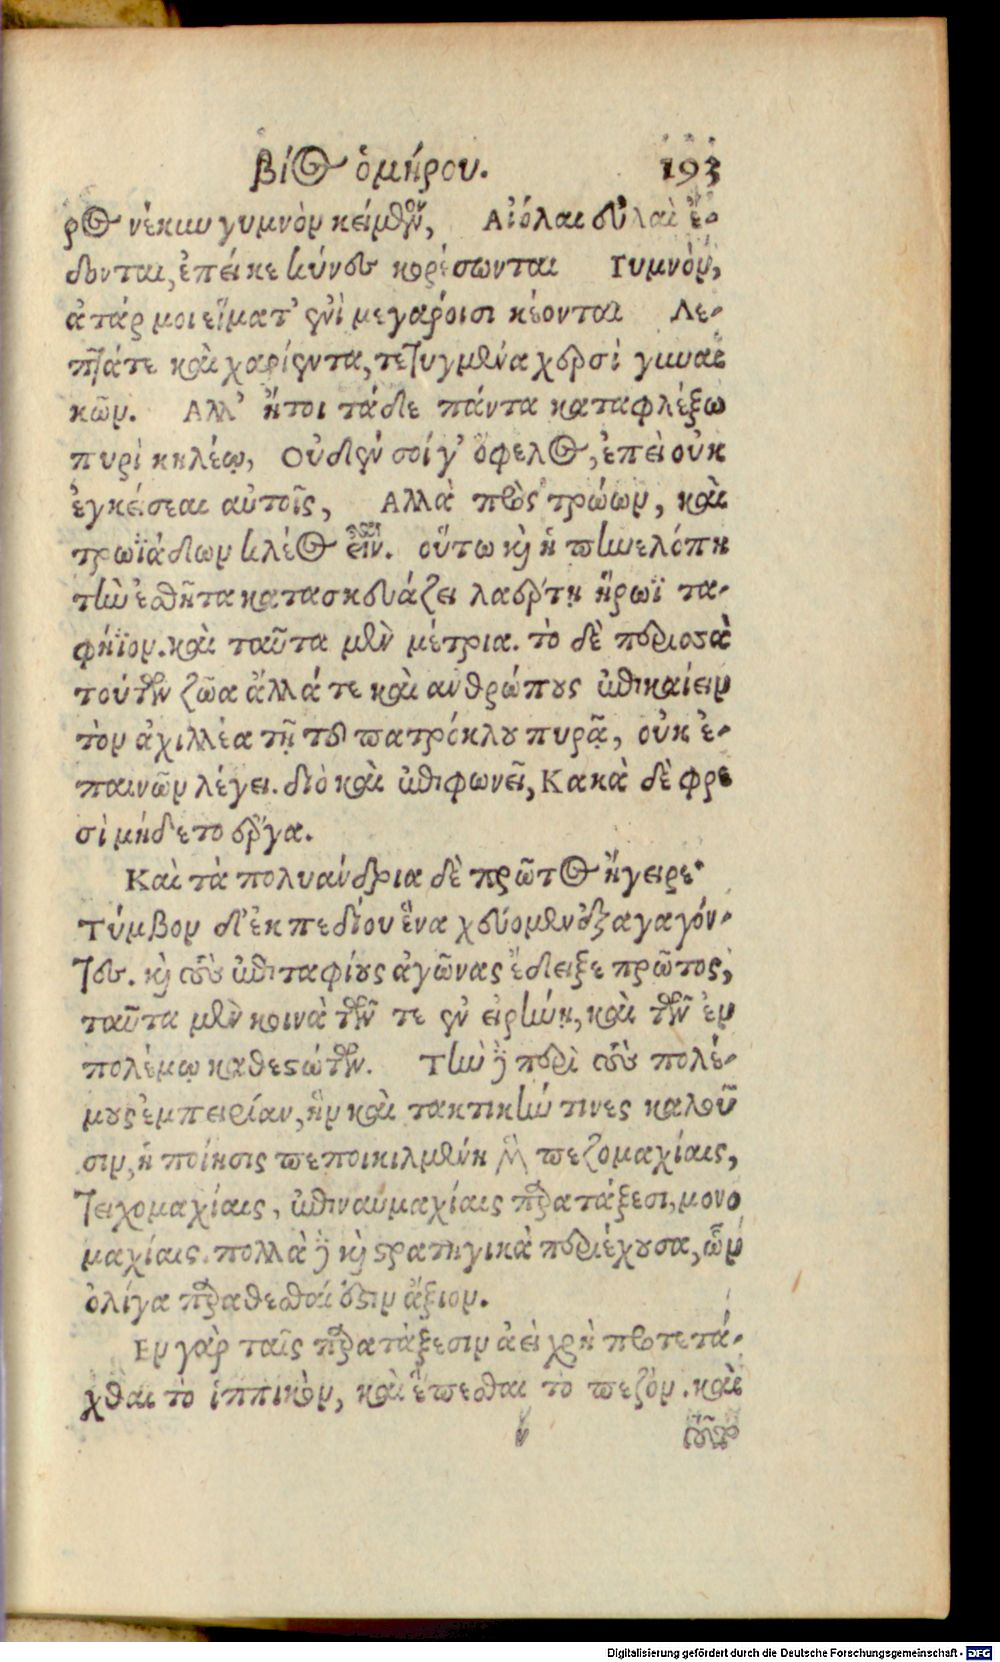 βίος ὁμήρου. 193
ρος νέκυυ γυμνὸν κείμενον, Αἰόλαι εὐλαὶ ἔ-
δονται, ἐπεί κε κύνες κορέσωνται Γυμνὸν,
ἀτάρ μοι εἵματ' ἐνὶ μεγαρόισι κέονται Λε-
πτά τε καὶ χαρίεντα, τετυγμένα χερσὶ γυναι
κῶν. Αλλ' ἤτοι τάδε πάντα καταφλέξω
πυρὶ κηλέῳ, Οὐδὲν σοί γ' ὄφελος, ἐπεὶ οὐκ
ἐγκείσεαι αὐτοῖς, Αλλὰ πρὸς τρώων, καὶ
τρωϊάδων κλέος εἶναι. οὕτω καὶ ἡ πηνελόπη
τὴν ἐσθῆτα κατασκευάζει λαέρτῃ ἥρωϊ τα-
φήϊον. καὶ ταῦτα μὲν μέτρια. τὸ δὲ περισσὰ
τούτων ζῶα ἄλλά τε καὶ ανθρώπους ἐπικαίειν
τὸν ἀχιλλέα τῇ τοῦ πατρόκλου πυρᾷ, οὐκ ἐ-
παινῶν λέγει. διὸ καὶ ἐπιφωνεῖ, Κακὰ δὲ φρε
σὶ μήδετο ἔργα.
Και τὰ πολυάνδρια δὲ πρῶτος ἤγειρε·
Τύμβον δ' ἐκ πεδίου ἕνα χεύομεν ἐξαγαγόν-
τες. καὶ τοὺς ἐπιταφίους ἀγῶνας ἔδειξε πρῶτος,
ταῦτα μὲν κοινὰ τῶν τε ἐν εἰρήνῃ, καὶ τῶν ἐν
πολέμῳ καθεστώτων. Τὴν δὲ περὶ τοὺς πολέ-
μους ἐμπειρίαν, ἣν καὶ τακτικήν τινες καλοῦ
σιν, ἡ ποίησις πεποικιλμένη πεζομαχίαις,
τειχομαχίαις, ἐπιναυμαχίαις παρατάξεσι, μονο
μαχίαις. πολλὰ δὲ καὶ στρατηγικὰ περιέχουσα, ὧν
ὀλίγα παραθέσθαί ἐστιν ἄξιον.
Εν γὰρ ταῖς παρατάξεσιν ἀεὶ χρὴ προτετά-
χθαι τὸ ἱππικὸν, καὶ ἕπεσθαι τὸ πεζόν. καὶ
Digitalisierung gefördert durch die Deutsche Forschungsgemeinschaft - DFG